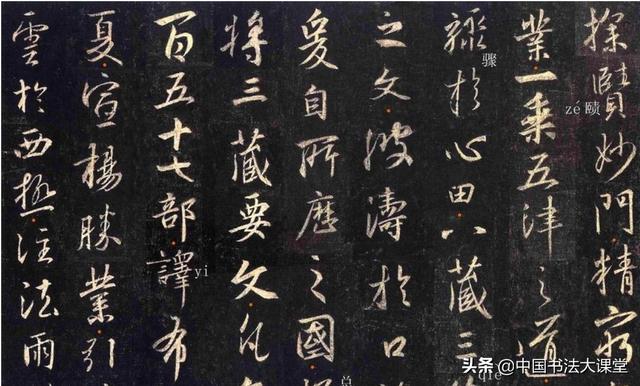 探賾妙門精窮
zé 赜
業一乘五律之道
驟於心田八藏三
骤
qie
之文波濤於口
爰自所歷之國
总
將三藏要文凡
百五十七部譯布
yi
夏宣揚勝業引
雲於西極注法雨
头条 @中国书法大课堂